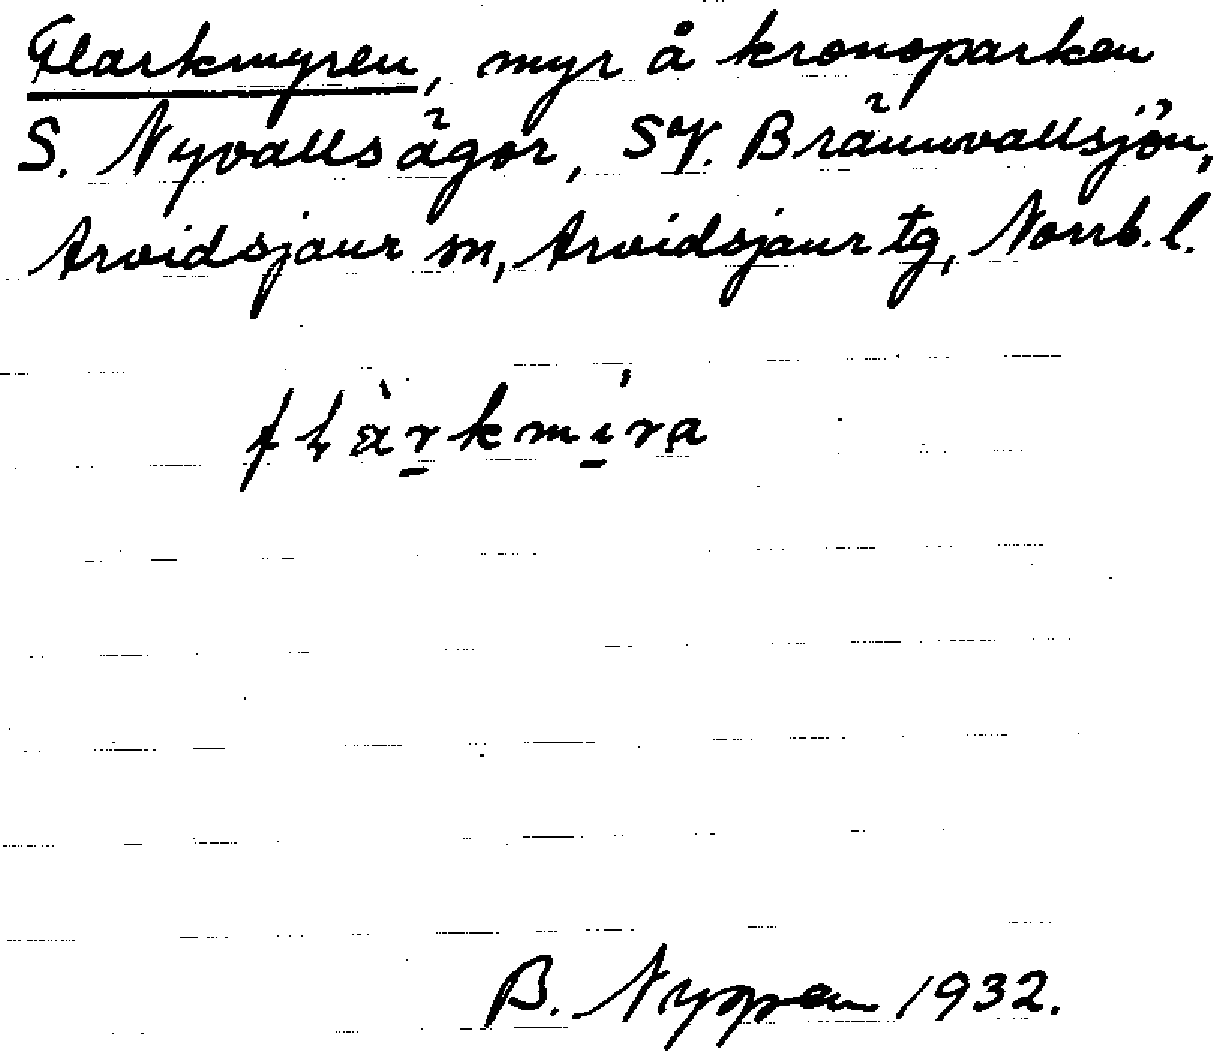 Flarkmyren, myr å kronoparken
S. Nyvallsägor, SV. Brännvallsjön,
Arvidsjaur sn, Arvidsjaur tg, Norrb. l.
flàrkmı́ra
B. Nygren 1932.